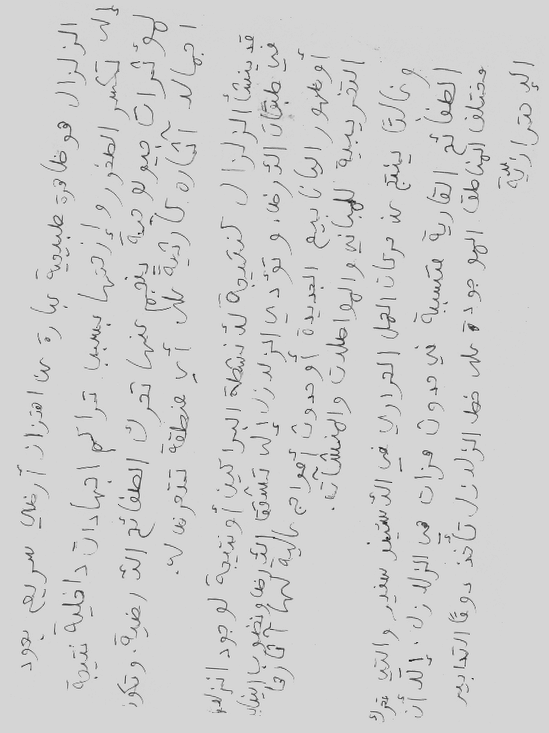 الزلزال هو ظاهرة طبيعية عبارة عن اهتزاز أرضي سريع يعود
إلى تكسر الصخور وإزاحتها بسبب تراكم اجهادات داخلية نتيجة
لمؤثرات جيولوجية ينجم عنها تحرك الصفائح الأرضية. وتكون
اجمالا آثاره كارثية على أي منطقة تتعرض له.
قد ينشأ الزلزال كنتيجة لأنشطة البراكين أو نتيجة لوجود انزلاق
في طبقات الأرض، وتؤدي الزلازل إلى تشقق الأرض ونضوب الينابيع
أو ظهور الينابيع الجديدة أو حدوث أمواج عالية لها آثارها
التخريبية للمباني والمواصلات والمنشآت.
وغالبا ينتج عن حركات الحمل الحراري في الأستينوسفير والتي تحرك
الصفائح القارية متسببة في حدوث هزات هي الزلازل. إلا أن
مختلف المناطق الموجودة على خط الزلازل تأخذ دوما التدابير
الاحترازية